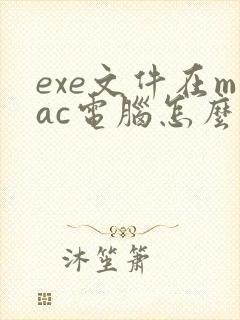 exe文件在m
ac電腦怎麼
沐笙簫